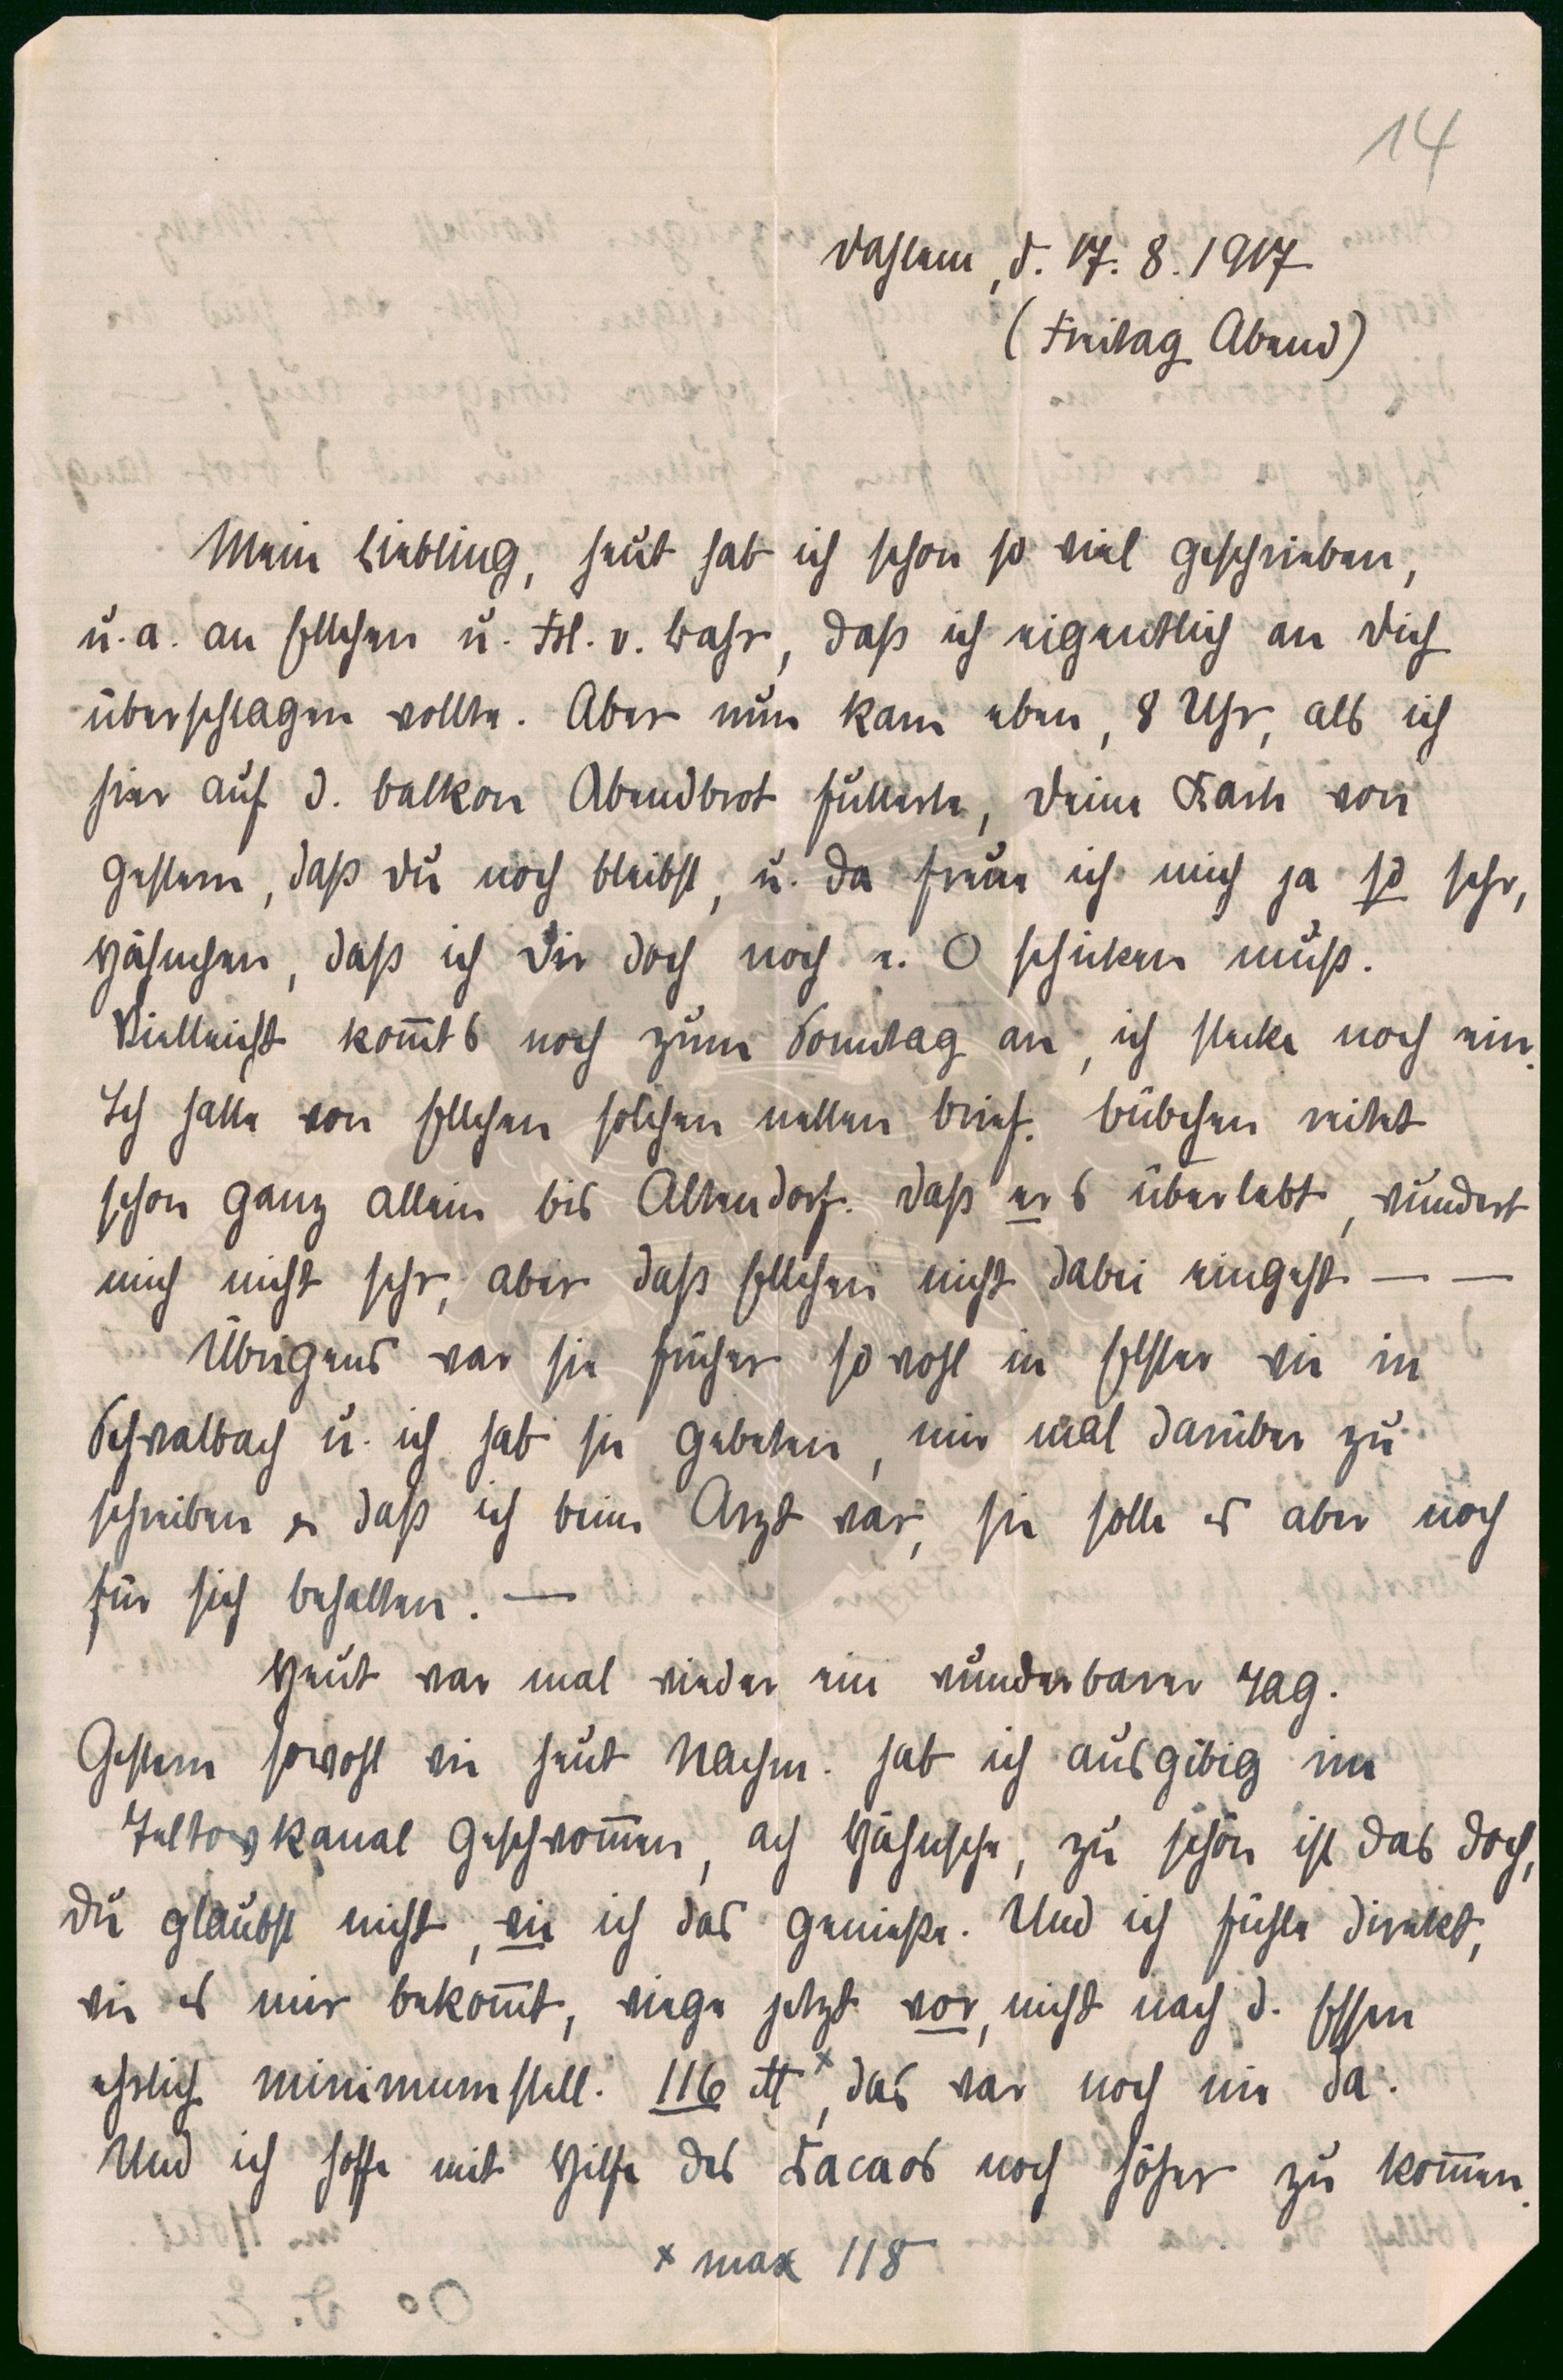 14
Dahlem, d. 17. 8. 1917
(Freitag Abend)
Mein Liebling, heut hab ich schon so viel geschrieben,
u. a. an Ellchen u. Frl. v. Bahr, daß ich eigentlich an Dich
überschlagen wollte. Aber nun kam eben, 8 Uhr, als ich
hier auf d. Balkon Abendbrot futterte, Deine Karte von
gestern, daß Du noch bleibst, u. da freue ich mich ja so sehr,
Hähnchen, daß ich Dir doch noch e. O schicken muß.
Vielleicht kom̅ts noch zum Sonntag an, ich stecke noch ein.
Ich hatte von Ellchen solchen netten Brief. Bübchen reitet
schon ganz allein bis Altendorf. Daß er s überlebt, wundert
mich nicht sehr, aber daß Ellchen nicht dabei eingeht — —
Übrigens war sie früher so wohl in Elster wie in
Schwalbach u. ich hab sie gebeten, mir mal darüber zu
schreiben daß ich beim Arzt war, sie solle es aber noch
für sich behalten. —
Heut war mal wieder ein wunderbarer Tag.
Gestern sowohl wie heut Nachm. hab ich ausgibig im
Teltowkanal geschwom̅en, ach Hähnche, zu schön ist das doch,
Du glaubst nicht, wie ich das genieße. Und ich fühle direkt,
wie es mir bekom̅t, wiege jetzt vor, nicht nach d. Essen
ehrlich minimumstell. 116 ℔ x, das war noch nie da.
Und ich hoffe mit Hilfe des Kacaos noch höher zu kom̅en.
x max 118